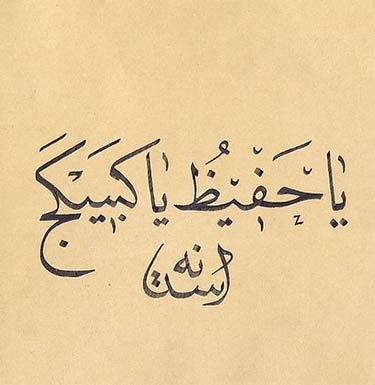 يا حَفِيْظُ يا كَبيكَج
استانه